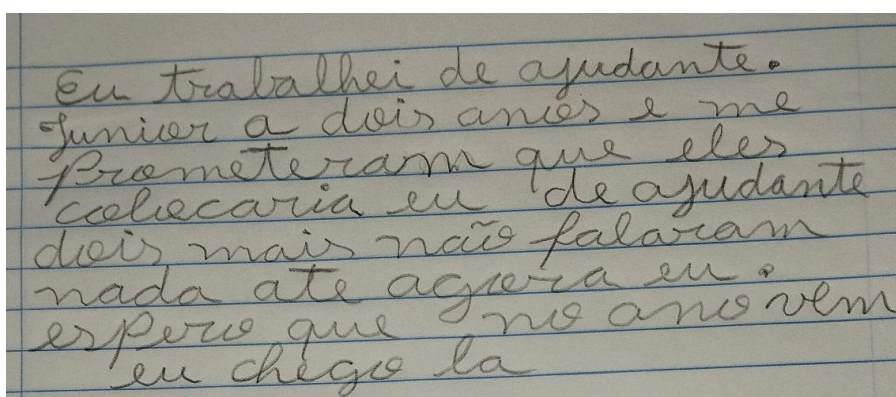 Eu trabalhei de ajudante.
Junior a dois anos e me
Prometeram que eles
colocaria eu de ajudante
dois mais não falaram
nada ate agora eu.
espero que no ano vem
eu chego la